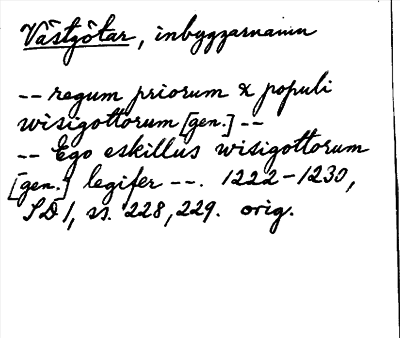 Västgötar, inbyggarnamn
-- regum priorum & populi
wisigottorum [gen.] --
-- Ego eskillus wisigottorum
[gen.] legifer --. 1222-1230,
SD 1, ss. 228, 229. orig.